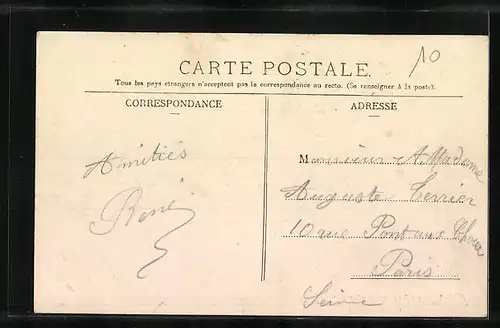 10
CARTE POSTALE.
Tous les pays etrangers n'acceptent pas la correspondance au recto. (Se renseigner à la poste).
CORRESPONDANCE
ADRESSE
Amitiés
René
Monsieur & Madame
Auguste
10 rue Pont aux Choux
Paris
Seine